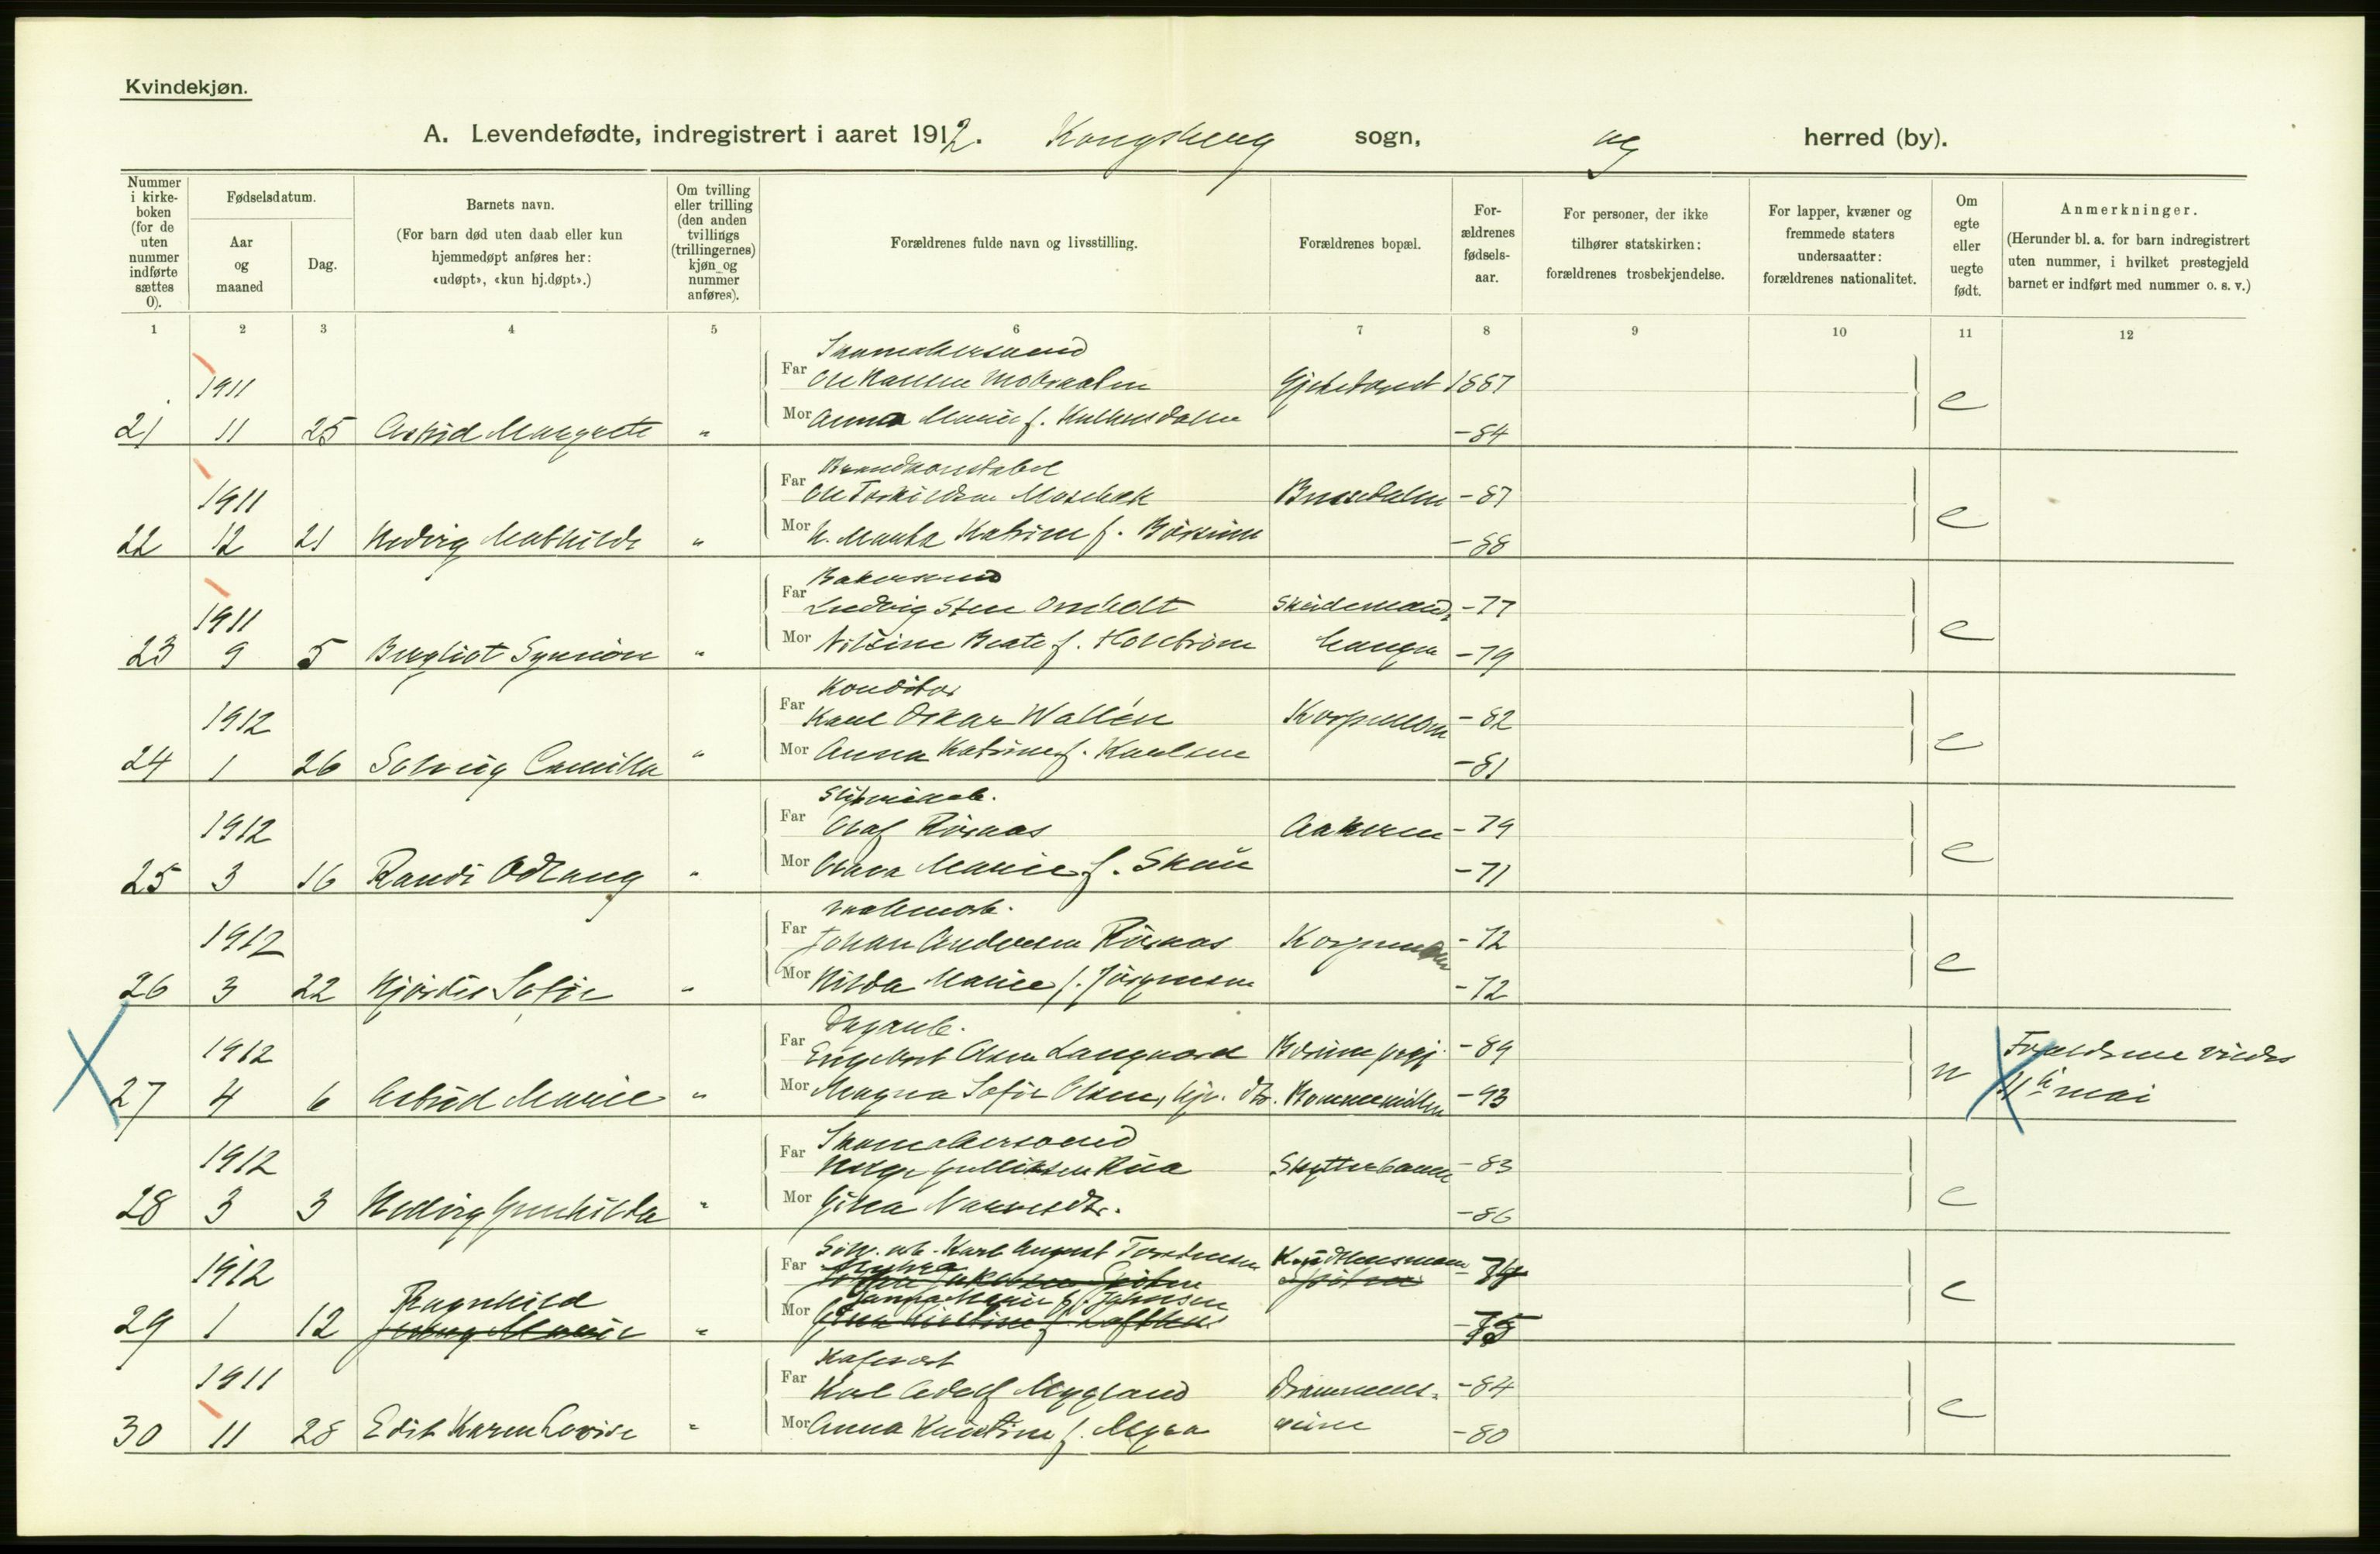 Kvindekjøn.
A. Levendefødte, indregistrert i aaret 1912. Kongsberg sogn, og herred (by).
Nummer i kirke-boken (for de uten nummer indførte sættes 0).
Fødselsdatum.
Aar og maaned
Dag.
Barnets navn.
(For barn død uten daab eller kun hjemmedøpt anføres her: «udøpt», «kun hj.døpt».)
Om tvilling eller trilling (den anden tvillings (trillingernes) kjøn og nummer anføres).
Forældrenes fulde navn og livsstilling.
Forældrenes bopæl.
For-ældrenes fødsels-aar.
For personer, der ikke tilhører statskirken: forældrenes trosbekjendelse.
For lapper, kvæner og fremmede staters undersaatter: forældrenes nationalitet.
Om egte eller uegte født.
Anmerkninger.
(Herunder bl. a. for barn indregistrert uten nummer, i hvilket prestegjeld barnet er indført med nummer o. s. v.)
1 2 3 4 5 6 7 8 9 10 11 12
Skomakersvend
1911 Far Ole Hansen 1887
21 11 25 Astrid Margrete " Mor Anna Marie f. -84 e
Brandkonstabel
1911 Far Ole Torkildsen Mosebæk -87
22 12 21 Hedvig Mathilde " Mor H. Marta Katrine f. -88 e
Bakersvend
1911 Far Ludvig Sten Omholt -77
23 9 5 Bergliot Synnöve " Mor Nilsine Beate f. Holtström -79 e
Konditor
1912 Far Karl Oskar Wallén Korpmoen -82
24 1 26 Solveig Camilla " Mor Anna Katrine f. Karlsen -81 e
1912 Far Olaf Rösaas Aakeren -79
25 3 16 Randi Odlaug " Mor Olava Marie f. Skau -71 e
1912 Far Johan Andersen Rösaas Korpmoen -72
26 3 22 Hjördis Sofie " Mor Hilda Marie f. Jörgensen -72 e
Dagarb.
1912 Far Engebret Olsen Langaard -89 Forældrene vides
27 4 6 Astrid Marie " Mor Magna Sofie Olsen, -93 u 4de mai
Skomakersvend
1912 Far Helge Gulliksen Rua Skytterbanen -83
28 3 3 Hedvig Gunhilda " Mor Gisea -86 e
1912 Far Karl August Torstensen
Myhra
Ragnhild Mor Janna Marie f. Johnsen
29 1 12 " -75 e
1911 Far Karl Adolf Mygland Drammens- -84
30 11 28 Edit Karen Lovise " Mor Anna Kristine f. Myra veien -80 e